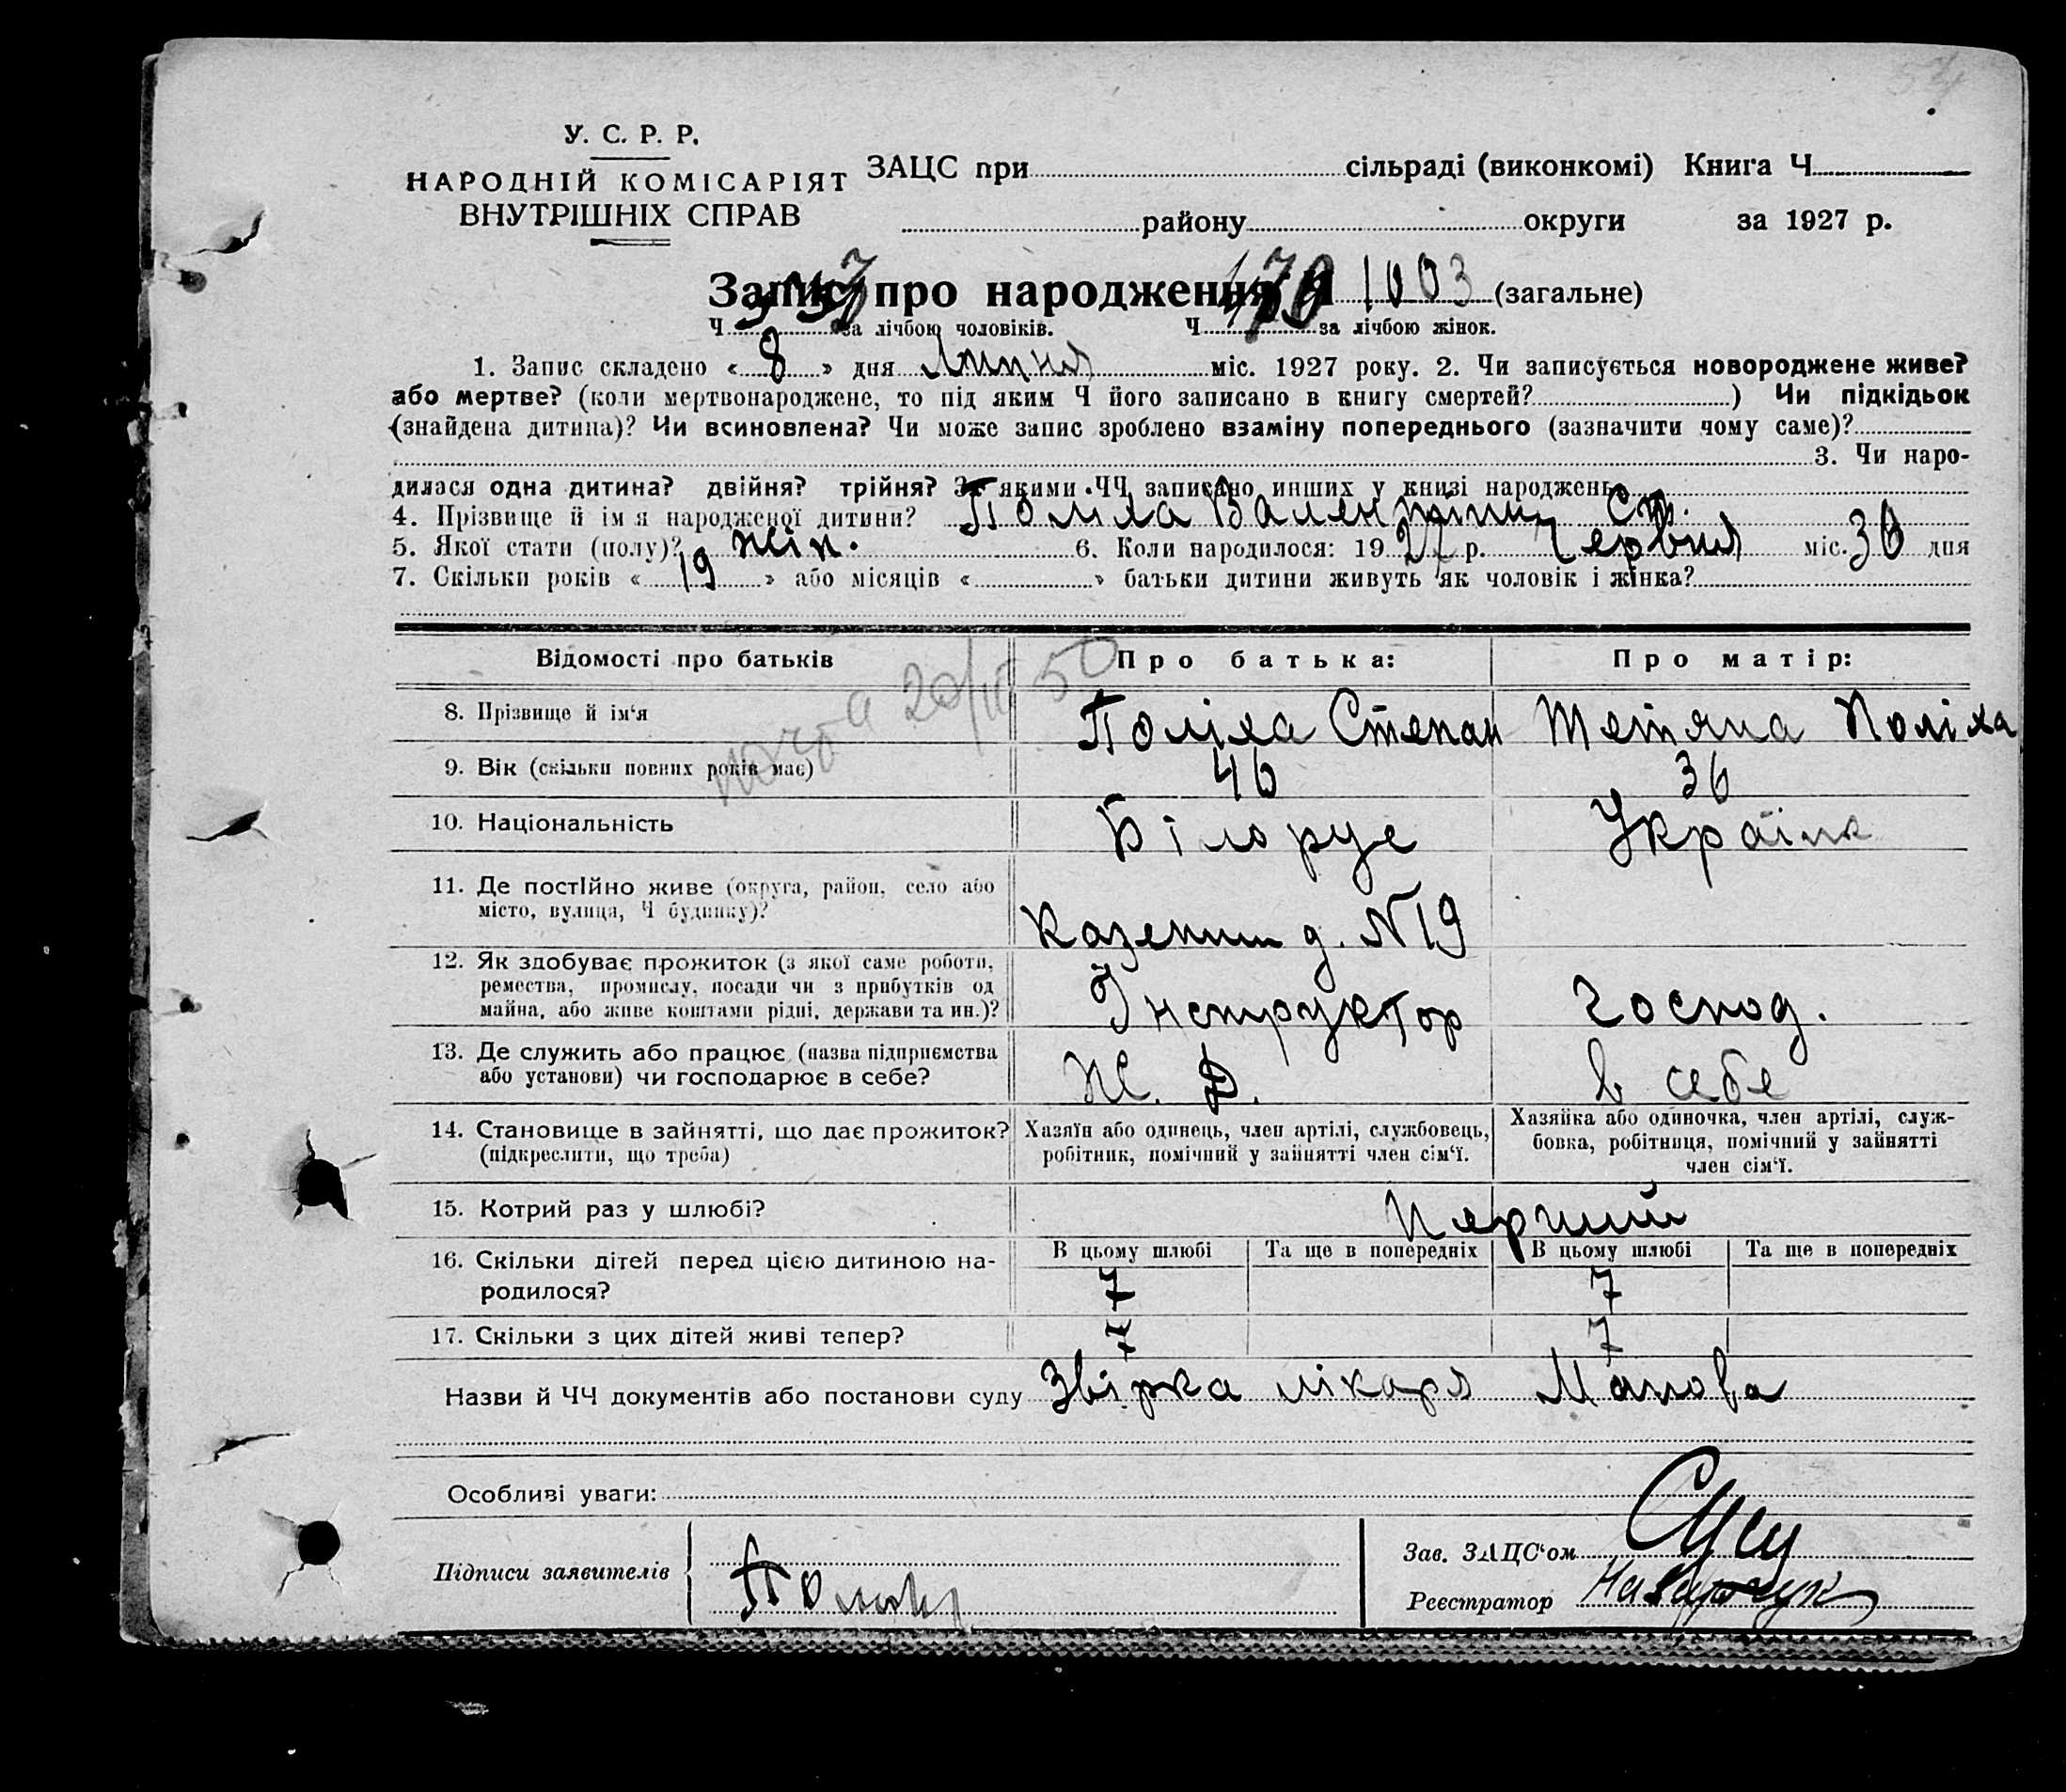 У. С. Р. Р.
НАРОДНІЙ КОМІСАРІЯТ
ВНУТРІШНІХ СПРАВ
ЗАЦС при сільраді (виконкомі) Книга Ч
району округи за 1927 р.
Запис про народження 1003 (загальне)
Ч за лічбою чоловіків. Ч за лічбою жінок.
1. Запис складено « 8 » дня Липня міс. 1927 року. 2. Чи записується новороджене живе?
або мертве? (коли мертвонароджене, то під яким Ч його записано в книгу смертей? ) Чи підкідьок
(знайдена дитина)? Чи всиновлена? Чи може запис зроблено взаміну попереднього (зазначити чому саме)?
3. Чи наро-
дилася одна дитина? двійня? трійня? За якими ЧЧ записано инших у книзі народжень
4. Прізвище й ім я народженої дитини? Поліха Валентина Ст.
5. Якої стати (полу)? жін. 6. Коли народилося: 1927 р. Червня міс. 30 дня
7. Скільки років « 19 » або місяців « » батьки дитини живуть як чоловік і жінка?
Відомості про батьків
Про батька:
Про матір:
8. Прізвище й ім‘я
Поліха Степан
Тетяна Поліха
9. Вік (скільки повних років має)
46
36
10. Національність
Білорус
Українк
11. Де постійно живе (округа, район, село або
місто, вулиця, Ч будинку)?
Казенний д. N19
12. Як здобуває прожиток (з якої саме роботи,
ремества, промислу, посади чи з прибутків од
майна, або живе коштами рідні, держави та ин.)?
Інструктор
Господ.
13. Де служить або працює (назва підприємства
або установи) чи господарює в себе?
Ж. Д.
в себе
14. Становище в зайнятті, що дає прожиток?
(підкреслити, що треба)
Хазяїн або одинець, член артілі, службовець,
робітник, помічний у зайнятті член сім‘ї.
Хазяйка або одиночка, член артілі, служ-
бовка, робітниця, помічний у зайнятті
член сім‘ї.
15. Котрий раз у шлюбі?
Перший
16. Скільки дітей перед цією дитиною на-
родилося?
В цьому шлюбі Та ще в попередніх В цьому шлюбі Та ще в попередніх
7 7
17. Скільки з цих дітей живі тепер?
7 7
Назви й ЧЧ документів або постанови суду Звірка лікаря
Особливі уваги:
Підписи заявителів
Зав. ЗАЦС‘ом
Реєстратор